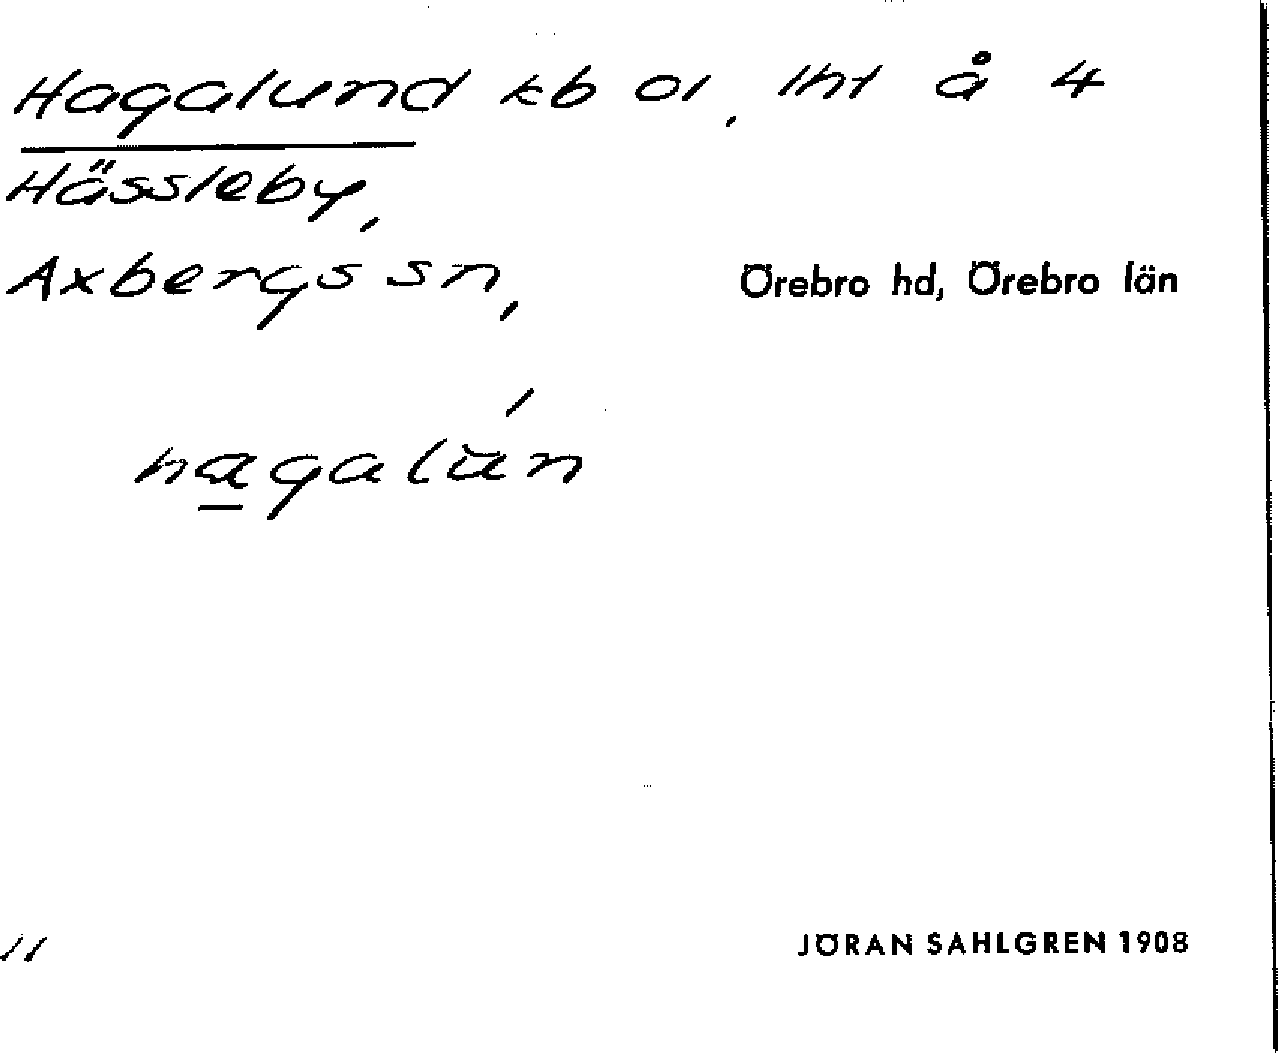 Hagalund kb ol, lht å 4
Hässleby,
Axbergs sn, Örebro hd, Örebro län
hagalun
11 JÖRAN SAHLGREN 1908